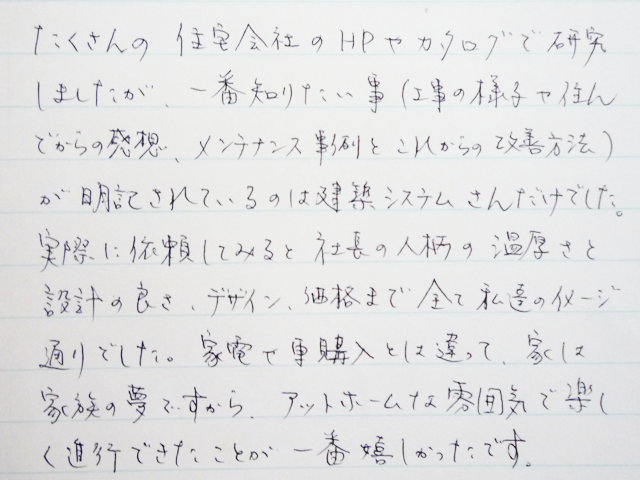 たくさんの 住宅会社のHPやカタログで研究
しましたが、一番知りたい事(工事の様子や住ん
でからの感想、メンテナンス事例とこれからの改善方法)
が明記されているのは建築システムさんだけでした。
実際に依頼してみると社長の人柄の温厚さと
設計の良さ、デザイン、価格まで全て私達のイメージ
通りでした。家電や車購入とは違って、家は
家族の夢ですから、アットホームな雰囲気で楽し
く進行できたことが一番嬉しかったです。